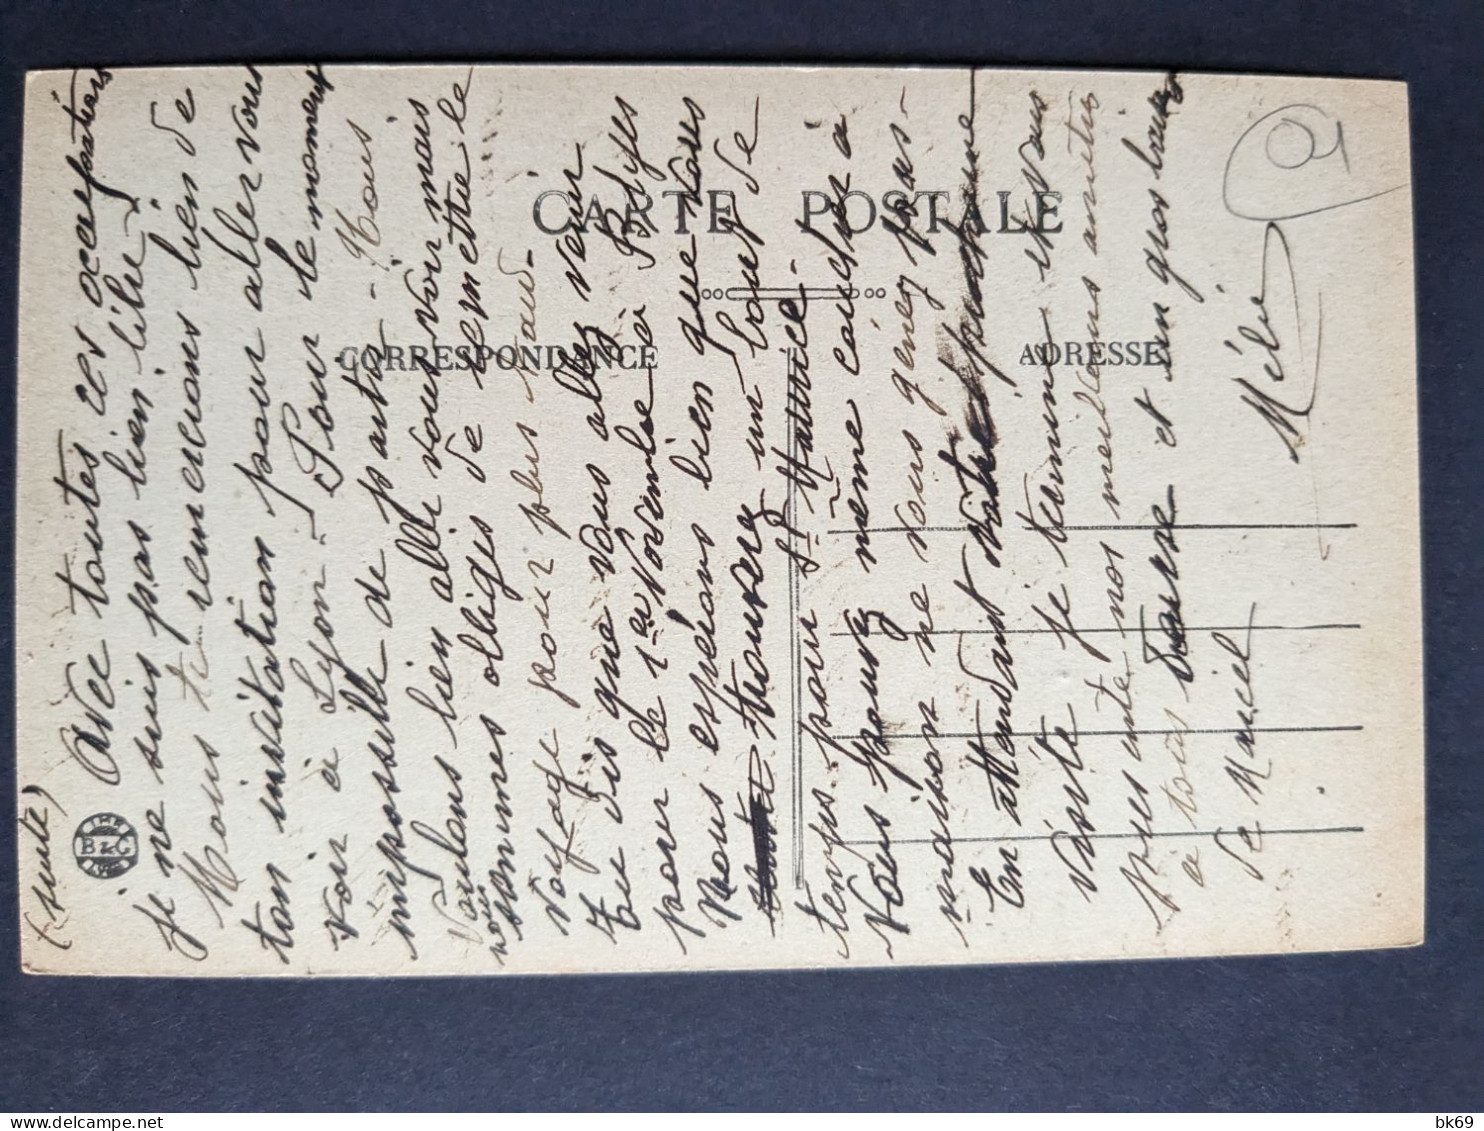 (suite)
Avec toutes ces occupations
je ne suis pas bien libre.
Nous te remercions bien de
ton invitation pour aller vous
voir à Lyon. Pour le moment
impossible de partir. Nous
voulons bien aller vous voir mais
nous sommes obligés de remettre le
voyage pour plus tard.
Tu dis que vous allez venir
pour le 1er Novembre à
Nous espérons bien que vous
trouverez un bout de
temps pour St Maurice.
Vous pouvez même coucher à
maison ne vous gênez pas.
En attendant votre prochaine
visite je termine et vous
présente nos meilleures amitiés
à tous et un gros baiser
de Marcel
CARTE POSTALE
CORRESPONDANCE
ADRESSE
B & C
bk69